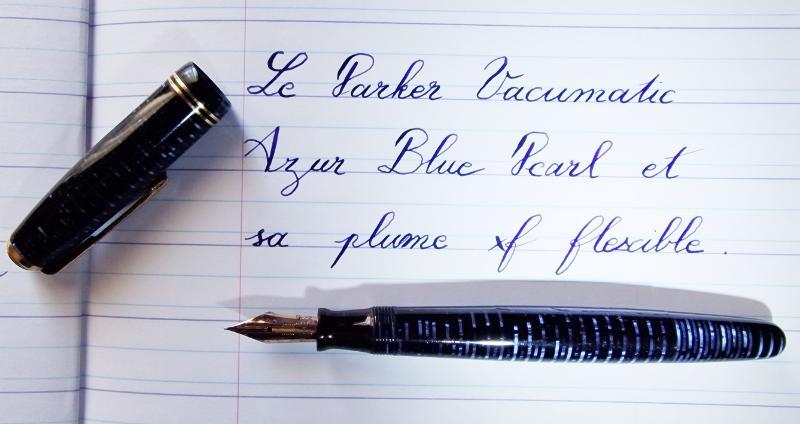 Le Parker Vacumatic
Azur Blue Pearl et
sa plume xf flexible.